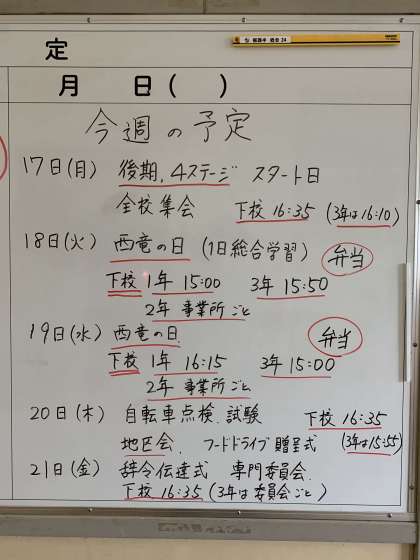 定
月 日( )
今週の予定
17日(月) 後期.4ステージ スタート日
全校集会 下校 16:35 (3年は16:10)
18日(火) 西竜の日 (1日総合学習) 弁当
下校 1年 15:00 3年 15:50
2年 事業所ごと
19日(水) 西竜の日 弁当
下校 1年 16:15 3年 15:00
2年 事業所ごと
20日(木) 自転車点検.試験 下校 16:35
地区会. フードドライブ贈呈式 (3年は15:55)
21日(金) 辞令伝達式 専門委員会
下校 16:35 (3年は委員会ごと)